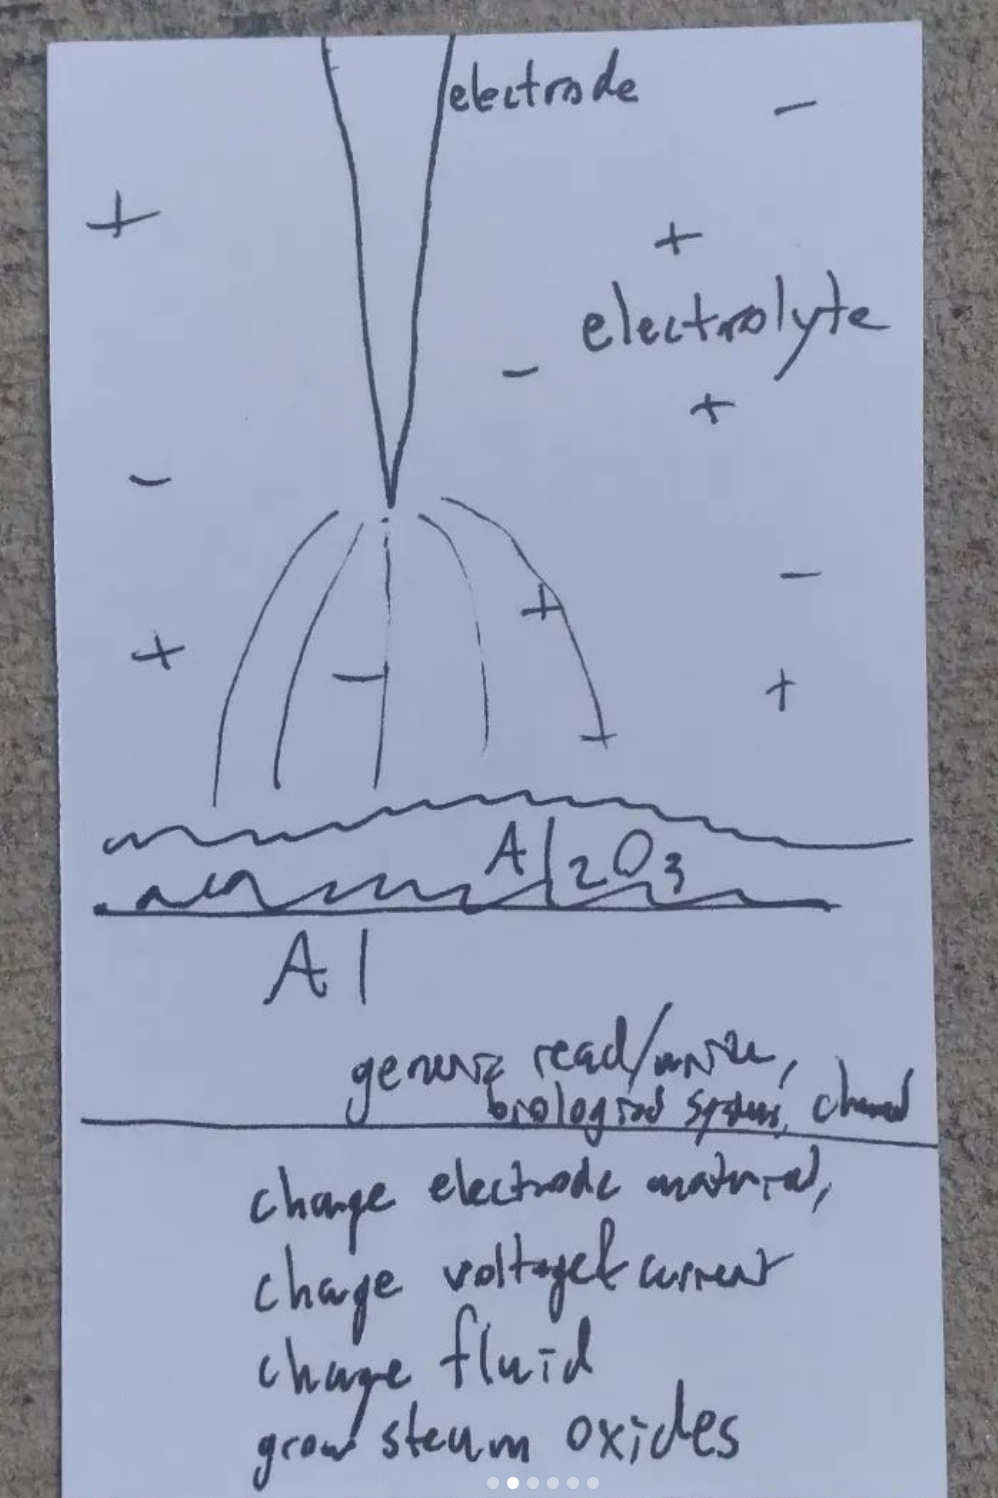 electrode
-
+
+
electrolyte
-
+
-
-
+
+
-
+
Al2O3
Al
generic read/write,
biological systems, channel
change electrode material,
change voltage & current
change fluid
grow steam oxides